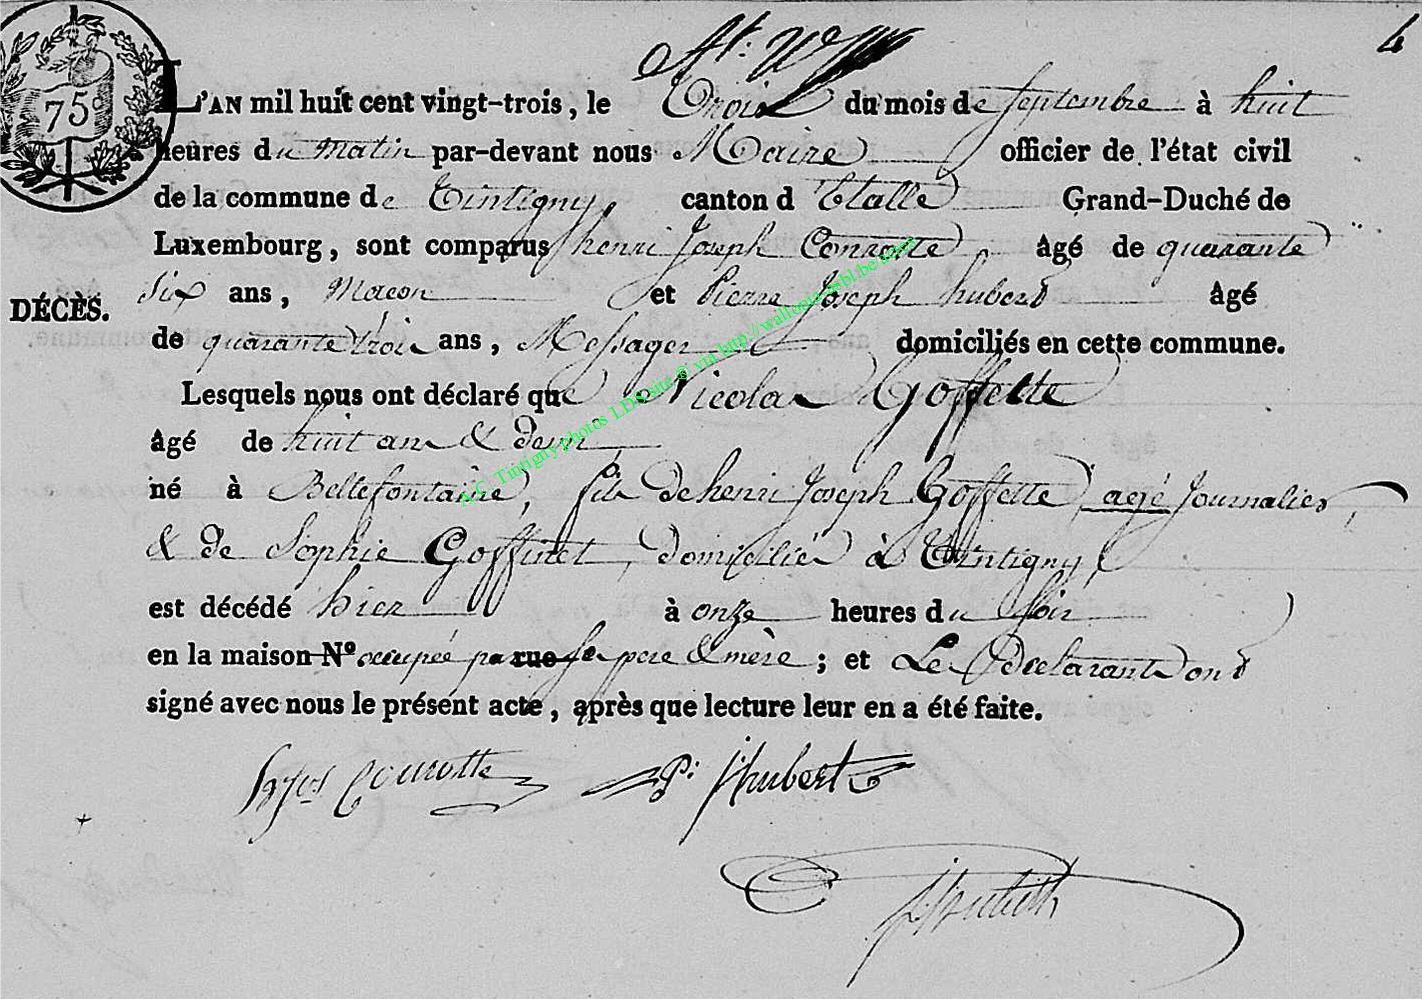 4
75
L'AN mil huit cent vingt-trois, le Trois du mois de Septembre à huit
heures du matin par-devant nous Maire officier de l'état civil
de la commune de Tintigny, canton d'Etalle Grand-Duché de
Luxembourg, sont comparus henri Joseph Conrotte âgé de quarante
DÉCÈS.
Six ans, Macon et Pierre Joseph hubert âgé
de quarante trois ans, Messager domiciliés en cette commune.
Lesquels nous ont déclaré que Nicolas Goffette
âgé de huit ans & demi
né à Bellefontaine, fils de henri Joseph Goffette agé Journalier,
& de Sophie Goffinet, domiciliés à Tintigny,
est décédé hier à onze heures du soir
en la maison N° occupée par rue ses pere & mère ; et Les Déclarants ont
signé avec nous le présent acte, après que lecture leur en a été faite.
Conrotte P. J hubert
A.C. Tintigny photos LDS site © via http://wallonia-asbl.be/actes